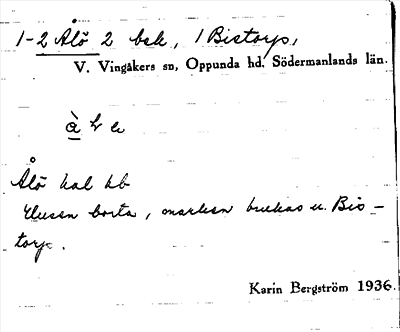 1-2 Ålö 2 bsk, 1 Bistorp,
V. Vingåkers sn, Oppunda hd. Södermanlands län.
Ålö kal hb
Husen borta, marken brukas u. Bis-
torp.
Karin Bergström 1936.